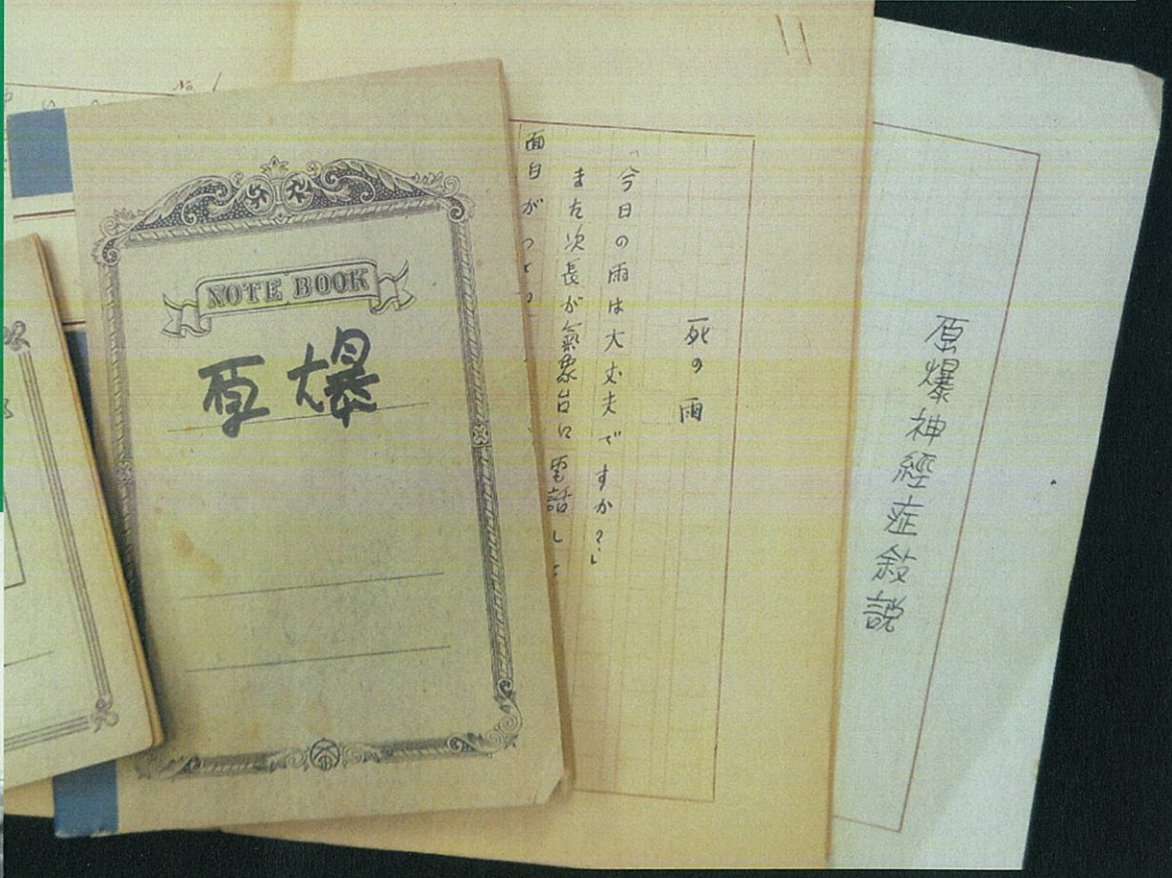 No.
NOTE BOOK
原爆
死の雨
「今日の雨は大丈夫ですか?」
また次長が氣象台に電話して
面白がって
原爆神経症敍説